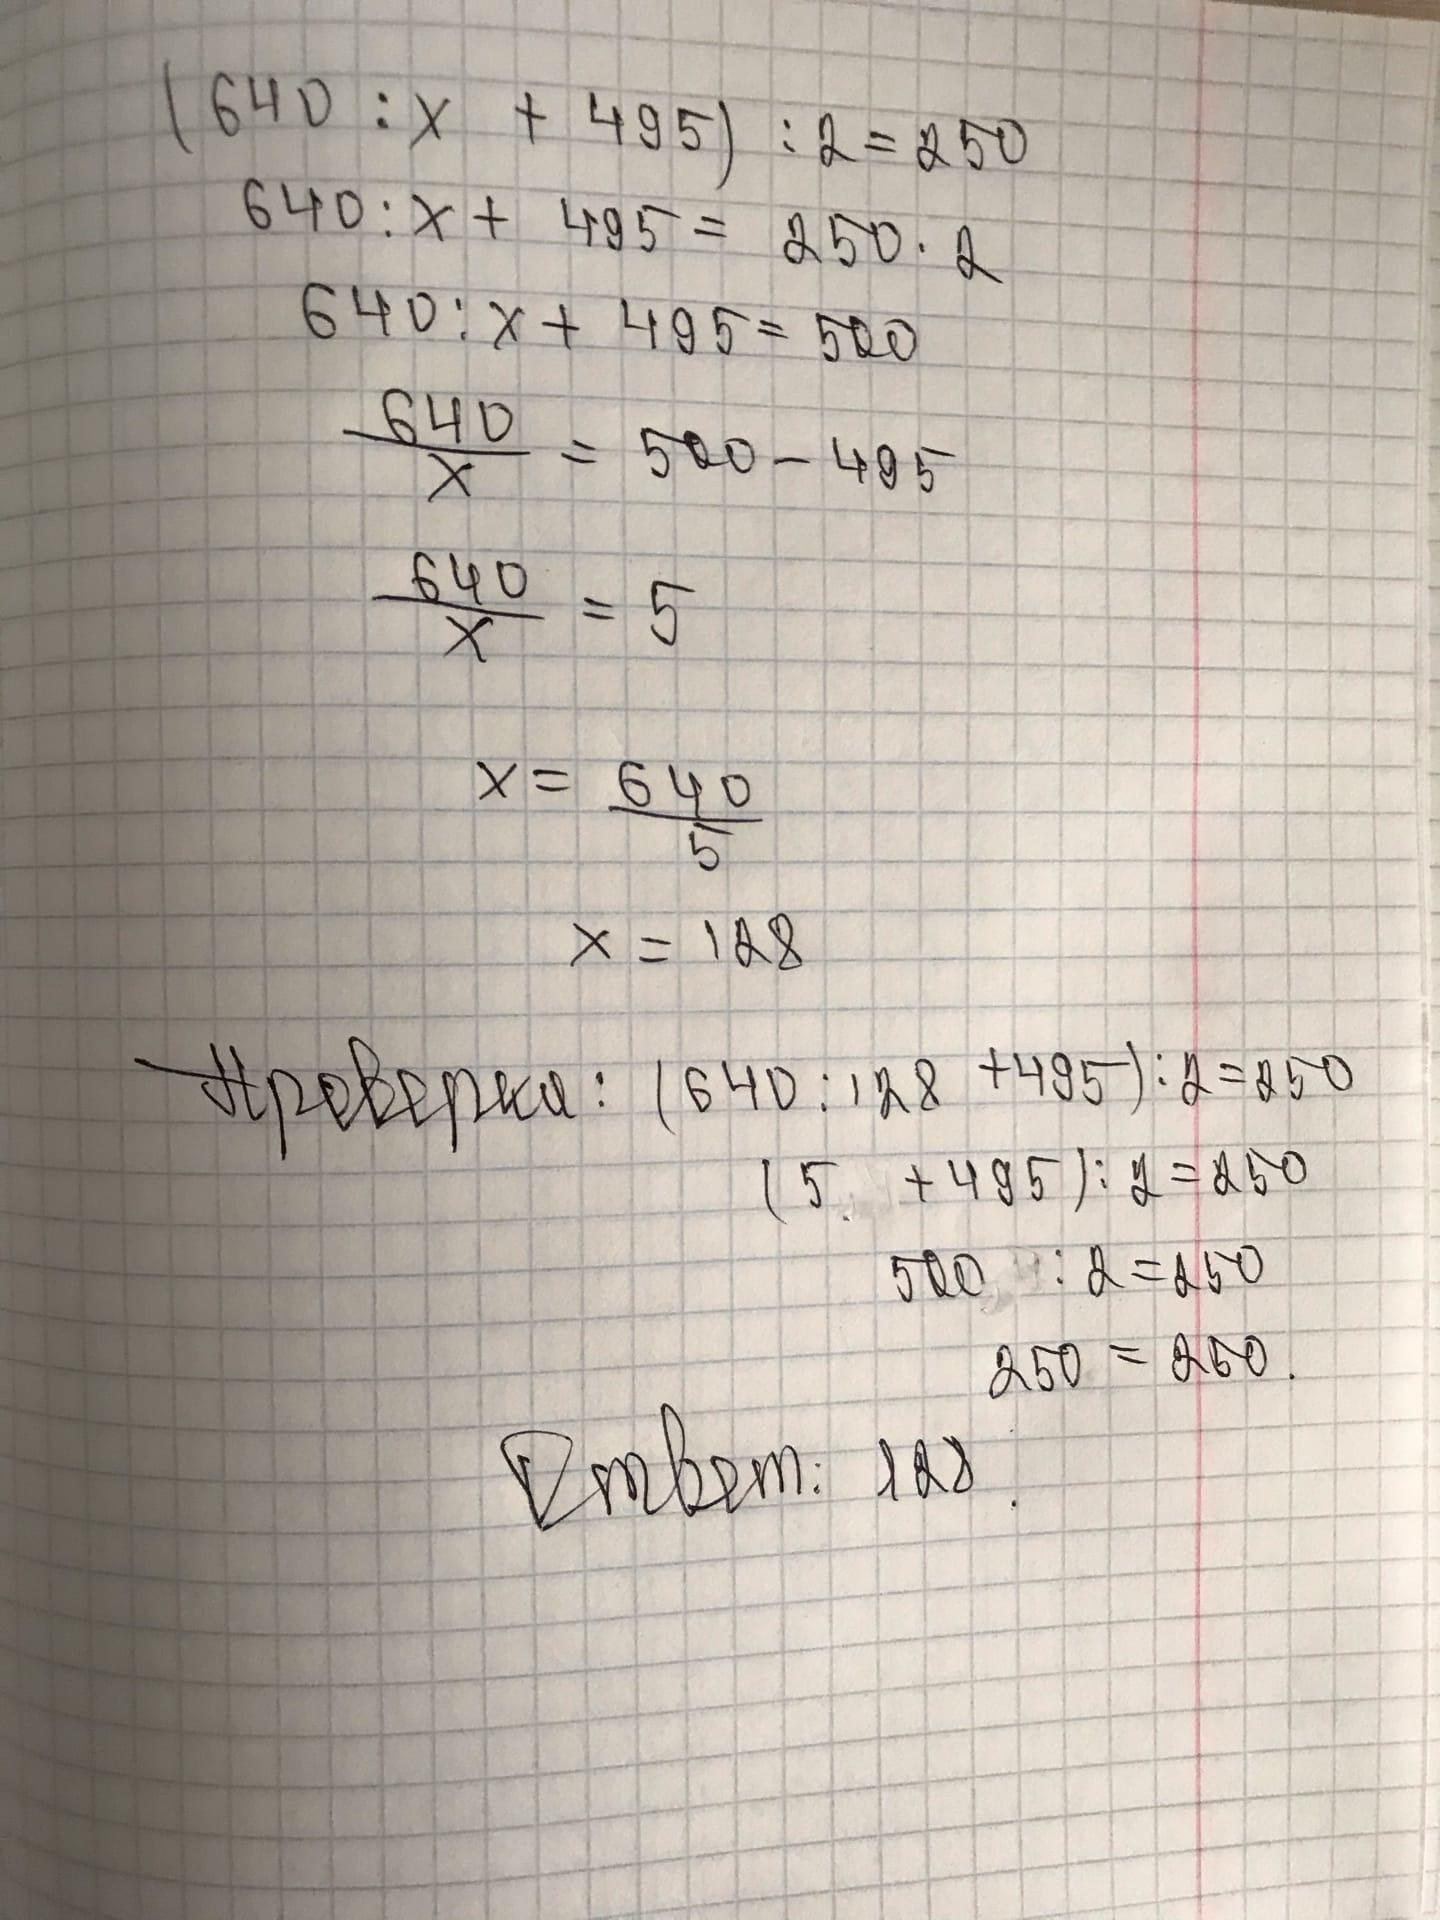 (640 : x + 495) : 2 = 250
640 : x + 495 = 250 · 2
640 : x + 495 = 500
640/x = 500 - 495
640/x = 5
x = 640/5
x = 128
Проверка: (640 : 128 + 495) : 2 = 250
(5 + 495) : 2 = 250
500 : 2 = 250
250 = 250.
Ответ: 128.